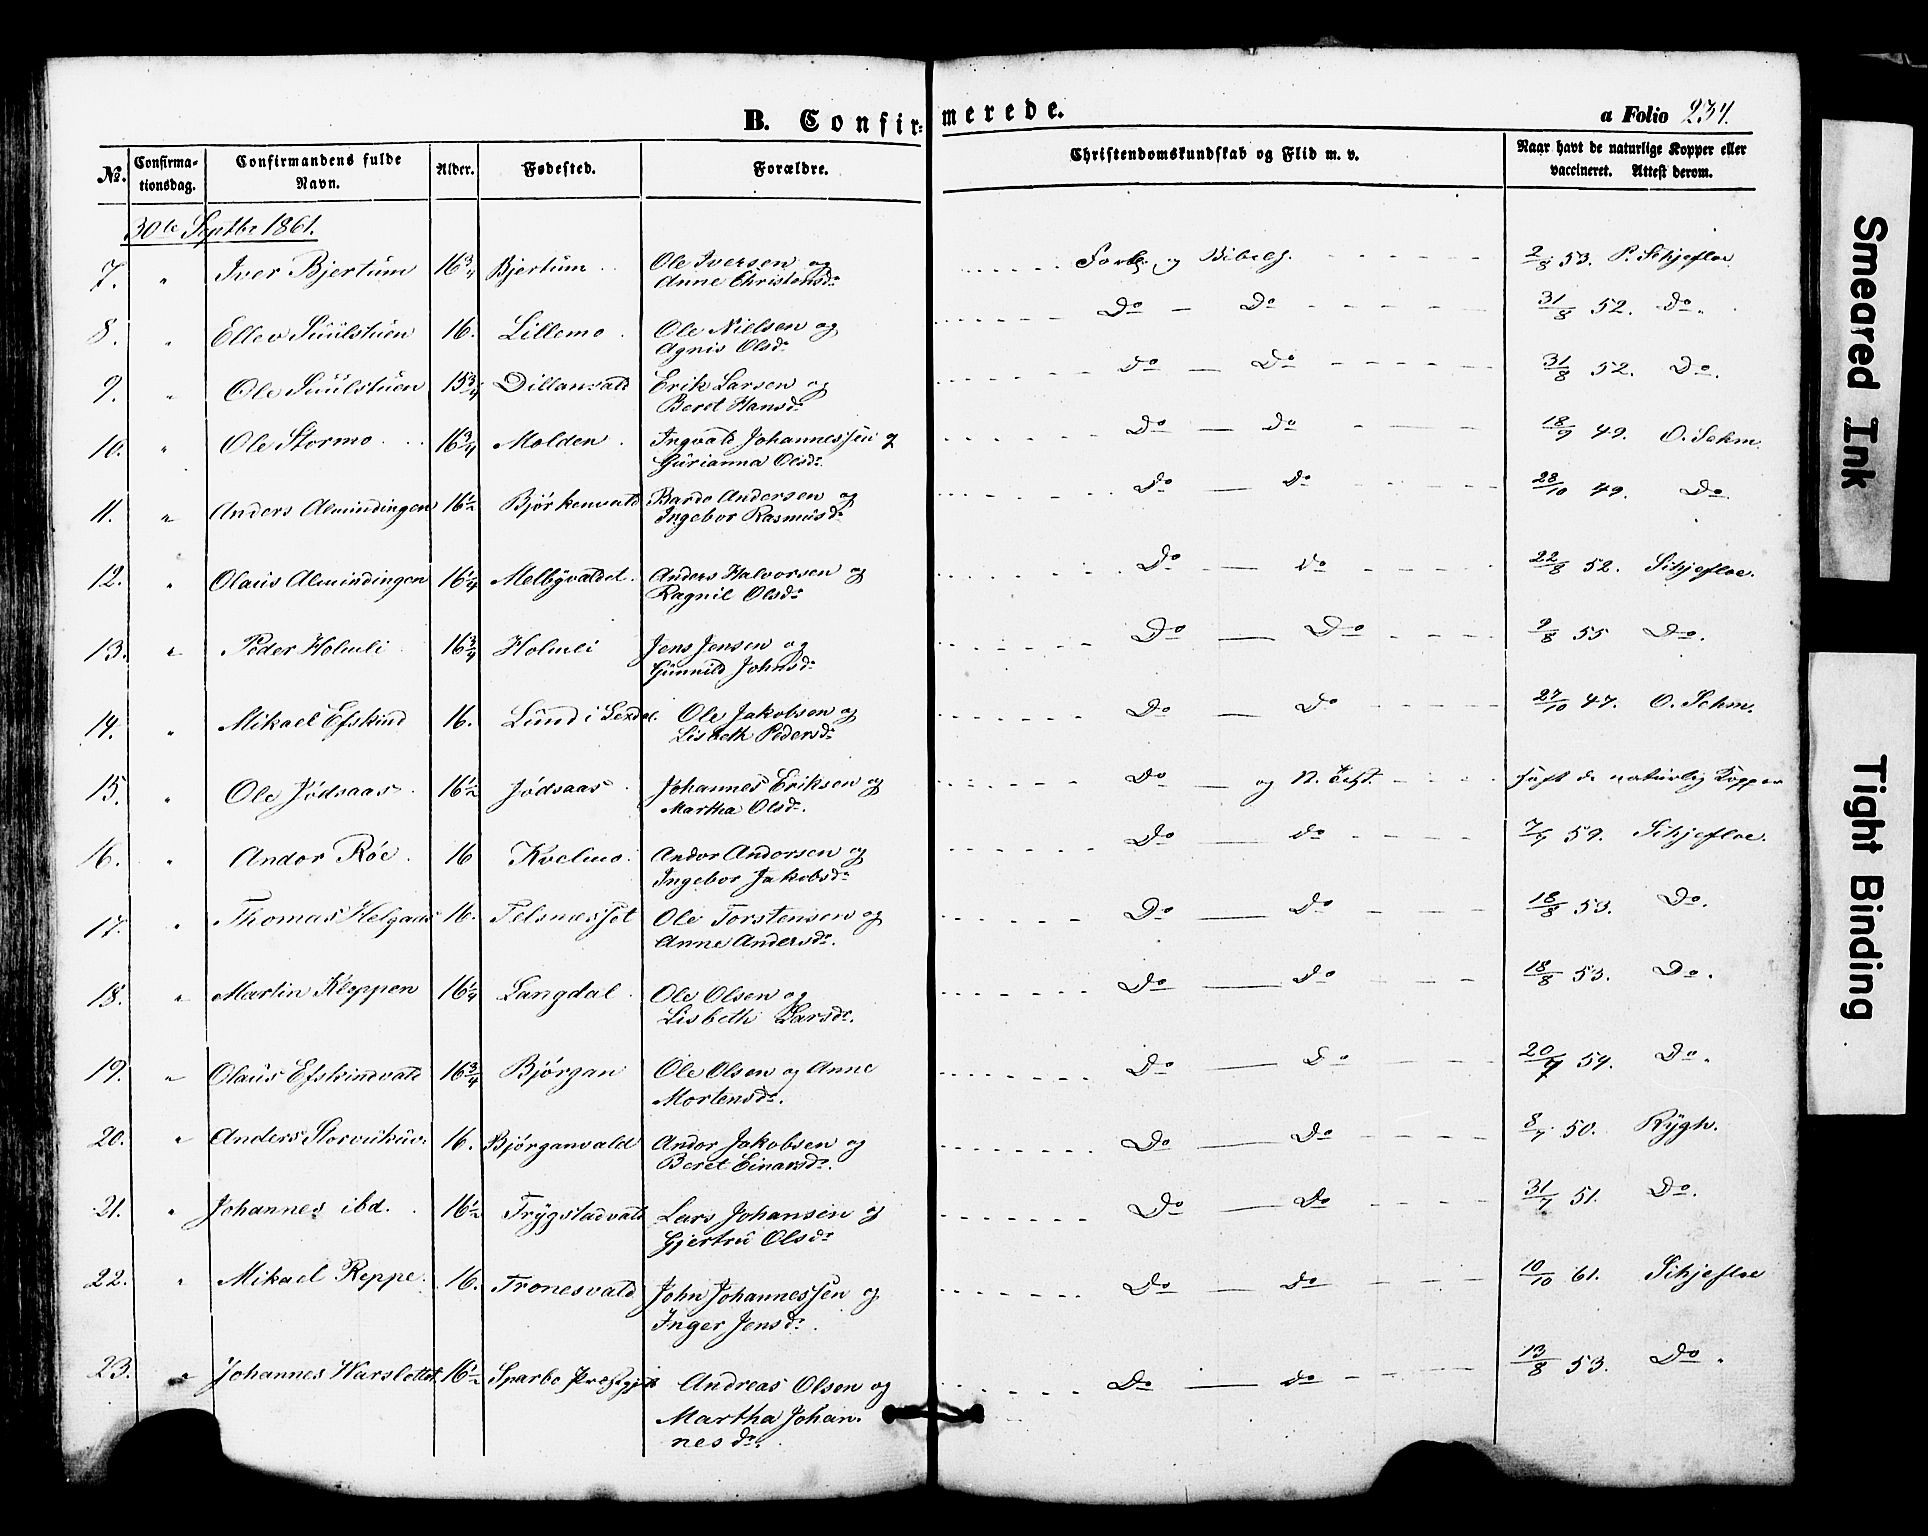 B. Confir- merede. a Folio 234.
No. Confirma-tionsdag. Confirmandens fulde Navn. Alder. Fødested. Forældre. Christendomskundskab og Flid m. v. Naar havt de naturlige Kopper eller vaccineret. Attest derom.
30te Septbr 1861.
7. " Iver Bjertum 16 3/4 Bjertum Ole Iversen og Anne Christensdr Forkl. og Bibelh. 2/8 53. P. Schjefloe
8. " Ellev Suulstuen 16. Lillemo Ole Nielsen og Agnis Olsdr Do - Do 31/8 52. Do.
9. " Ole Suulstuen 15 3/4 Dillanvald Erik Larsen og Beret Hansdr Do - Do 31/8 52. Do.
10. " Ole Stormo 16 3/4 Molden Ingvald Johannessen og Gurianna Olsdr Do - Do 18/9 49. O. Schm.
11. " Anders Almindingen 16 1/2 Bjørkenvald Bardo Andersen og Ingebor Rasmusdr Do - Do 28/10 49. Do
12. " Olaus Almindingen 16 1/4 Melbyvaldet Anders Halvorsen og Ragnil Olsdr Do - do 22/8 52. Schjefloe.
13. " Peder Holmli 16 3/4 Holmli Jens Jensen og Gunnild Johnsdr Do - Do 9/8 55 Do.
14. " Mikael Efskind 16. Lund i Lexdal Ole Jakobsen og Lisbeth Pedersdr Do - Do 27/10 47. O. Schm.
15. " Ole Jødsaas 16 1/2 Jødsaas Johannes Eriksen og Martha Olsdr. Do og N. Test. haft de naturlig Kopper
16. " Andor Røe 16 Kvelmo Andor Andorsen og Ingebor Jakobsdr Do - do 7/9 59. Schjefloe.
17. " Thomas Helgaas 16. Telsnesset Ole Torstensen og Anne Andersdr. Do - Do 18/8 53. Do.
18. " Martin Kleppen 16 1/4 Langdal Ole Olsen og Lisbeth Larsdr. Do - Do 18/8 53. Do.
19. " Olaus Efskindvald 16 3/4 Bjørgan Ole Olsen og Anne Mortensdr. Do - Do 20/9 54. Do.
20. " Anders Storvukuv. 16. Bjørganvald Andor Jakobsen og Beret Einarsdr. Do - Do 8/7 50. Rygh.
21. " Johannes ibd. 16 1/2 Trygstadvald Lars Johansen og Gjertru Olsdr Do - Do 31/7 51. Do.
22. " Mikael Reppe. 16. Tronesvald John Johannessen og Inger Jensdr. Do - do 10/10 61. Schjefloe
23. " Johannes Warslottet 16 1/2 Sparbo Præstgjeld Andreas Olsen og Martha Johan-nesdr. Do - do 13/8 53. Do.
Smeared Ink
Tight Binding